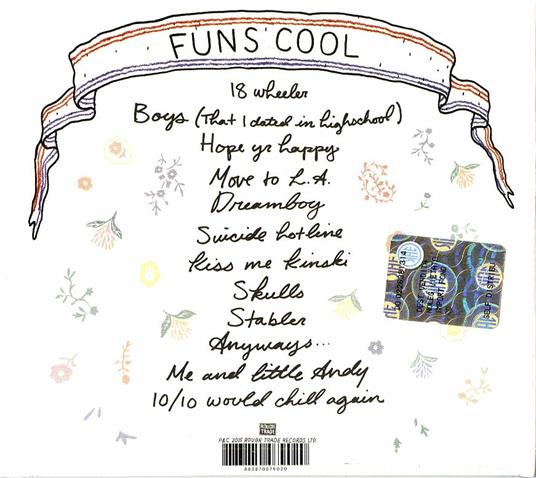 FUNS'COOL
18 wheeler
Boys (That I dated in highschool)
Hope yr happy
Move to L.A.
Dreamboy
Suicide hotline
Kiss me Kinski
Skulls
Stabler
Anyways...
Me and little Andy
10/10 would chill again
ROUGH
TRADE
P&C 2015 ROUGH TRADE RECORDS LTD.
883870079020